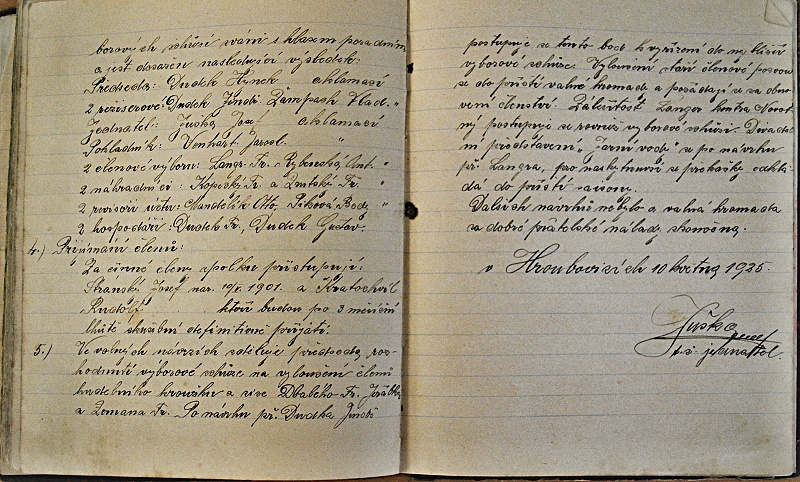 borových schůzí zváni s hlasem poradním
a jest dosažen následující výsledek:
Předseda: Dudek Hynek aklamací
2 režiserové: Dudek Jindř. Zámpach Vlad. "
Jednatel: Juska Josef aklamací
Pokladník: Venhart Jarosl. "
2 členové výboru: Langr Fr. Rybenský Ant. "
2 náhradníci: Kopecký Fr. a Zentský Fr. "
2 revisoři účtu: Mandelík Oto, Pitková Bož. "
2 hospodáři: Dudek Fr., Dudek Gustav.
4.) Přijímání členů:
Za činné členy spolku přistupují:
Stránský Josef nar. 1901. a Kratochvíl
Rudolf kteří budou po 3 měsíční
lhůtě zkušební definitivně přijati.
5.) Ve volných návrzích sděluje předseda roz-
hodnutí výborové schůze na vyloučení členů
hudebního kroužku a sice Dbalého Fr. Jeřábka
a Zemana Fr. Po návrhu př. Dudka Jindř
postupuje se tento bod k vyřízení do nejbližší
výborové schůze. Vyloučení staří členové pozvou
se do příští valné hromady a požádají se za obno-
vení členství. Záležitost Langer kontra Novot-
ný postupuje se revisní výborové schůzi. Divadel-
ní představení „Jarní vody" se po návrhu
př. Langra, pro naskytnuvší se překážky odklá-
dá do příští saisony.
Dalších návrhů nebylo a valná hromada
za dobré přátelské nálady skončena.
v Hroubovicích 10 května 1925.
Juska
t. č. jednatel.